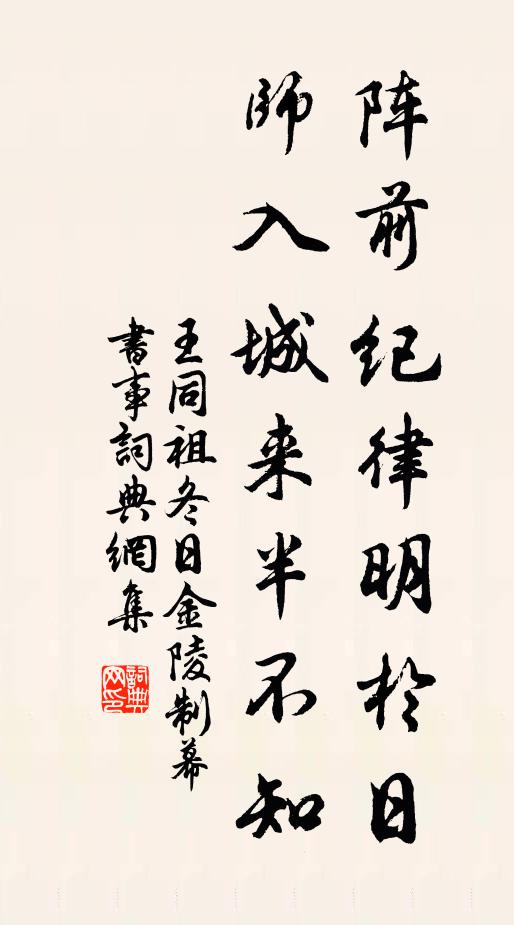 阵前纪律明於日
师入城来半不知
王同祖冬日金陵制幕
書事詞典網集
詞典
网印